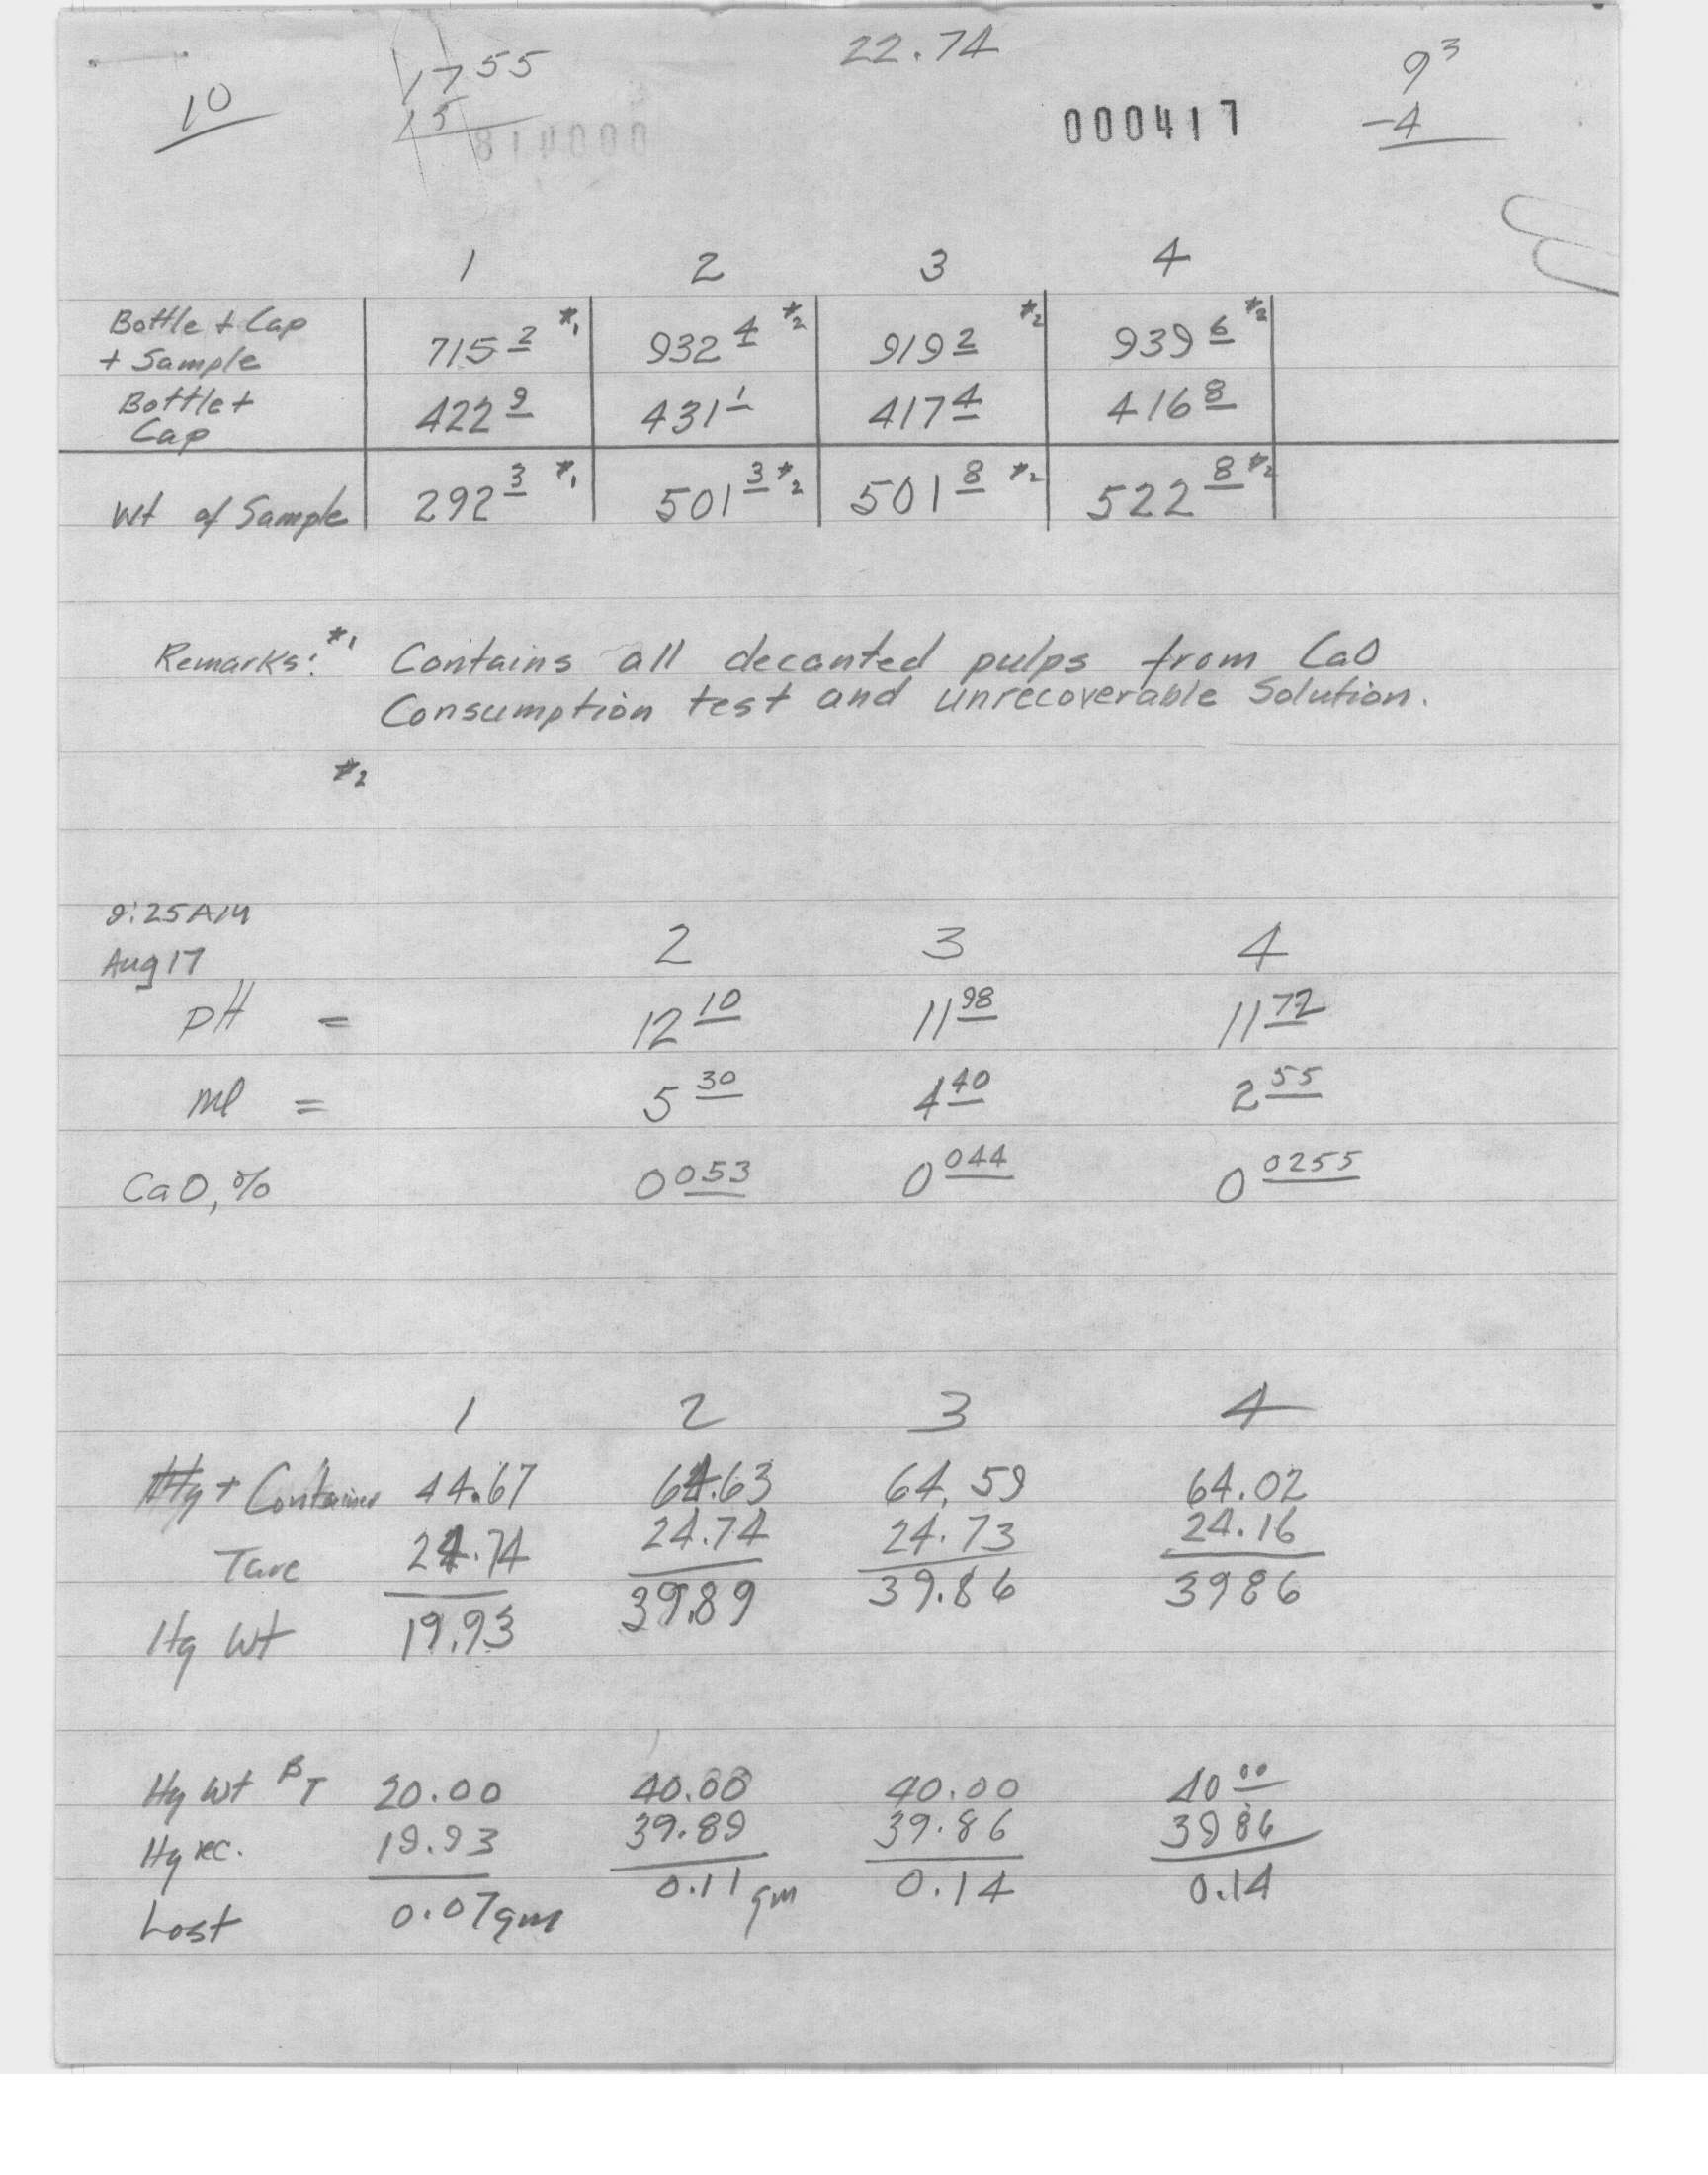 10 17 55 22.74 9 3
15 000417 -4
1 2 3 4
Bottle + Cap
+ Sample 715 2 *1 932 4 *2 919 2 *2 939 6 *2
Bottle +
Cap 422 9 431 1 417 4 416 8
Wt of Sample 292 3 *1 501 3 *2 501 8 *2 522 8 *2
Remarks: *1 Contains all decanted pulps from CaO
Consumption test and unrecoverable Solution.
*2
9:25 AM
Aug 17 2 3 4
pH = 12 10 11 98 11 72
ml = 5 30 4 40 2 55
CaO, % 0 053 0 044 0 0255
1 2 3 4
Hg + Container 44.67 64.63 64.59 64.02
Tare 24.74 24.74 24.73 24.16
Hg Wt 19.93 39.89 39.86 3986
Hg Wt BT 20.00 40.00 40.00 40 00
Hg rec. 19.93 39.89 39.86 3986
Lost 0.07 gm 0.11 gm 0.14 0.14